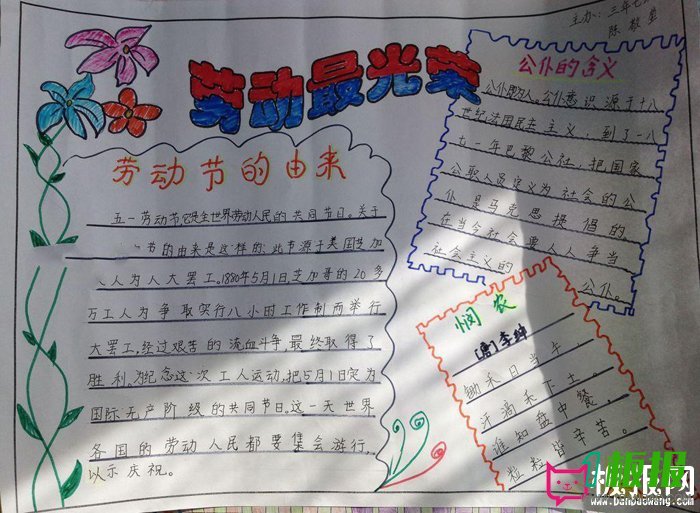 主办：三年七
陈敬
劳动最光荣
劳动节的由来
五一劳动节它是全世界劳动人民的共同节日。关于
节的由来是这样的，此节源于美国芝加
人为人大罢工。1886年5月1日，芝加哥的20多
万工人为争取实行八小时工作制而举行
大罢工，经过艰苦的流血斗争，最终取得了
胜利。为纪念这次工人运动，把5月1日定为
国际无产阶级的共同节日。这一天世界
各国的劳动人民都要集会游行，
以示庆祝。
公仆的含义
公仆即为人。公仆意识源于十八
世纪法国民主主义，到了一八
七一年巴黎公社，把国家
公职人员定义为社会的公
仆是马克思提倡的。
在当今社会要人人争当
社会主义的 公仆。
悯农
[唐]李绅
锄禾日当午，
汗滴禾下土。
谁知盘中餐，
粒粒皆辛苦。
板报网
www.banbaowang.com